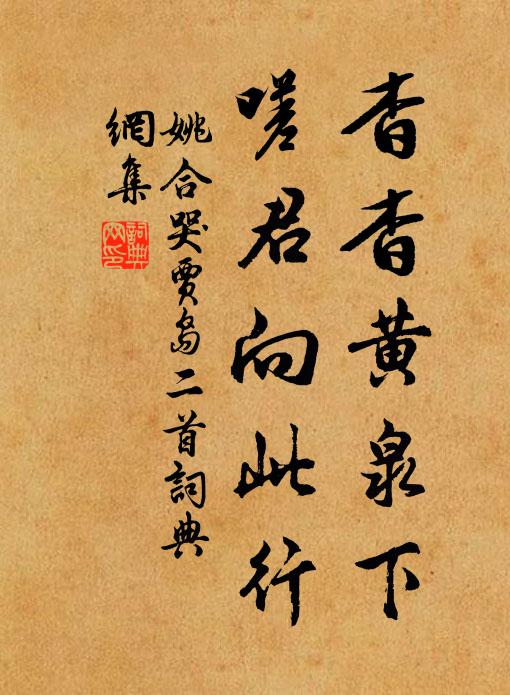 杳杳黄泉下
嗟君向此行
姚合哭賈島二首詞典
網集
詞典网印